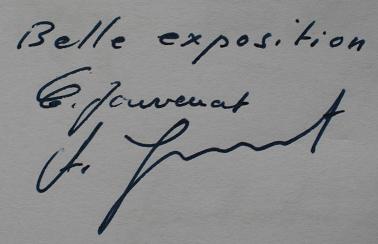 Belle exposition
C. Jouvenat